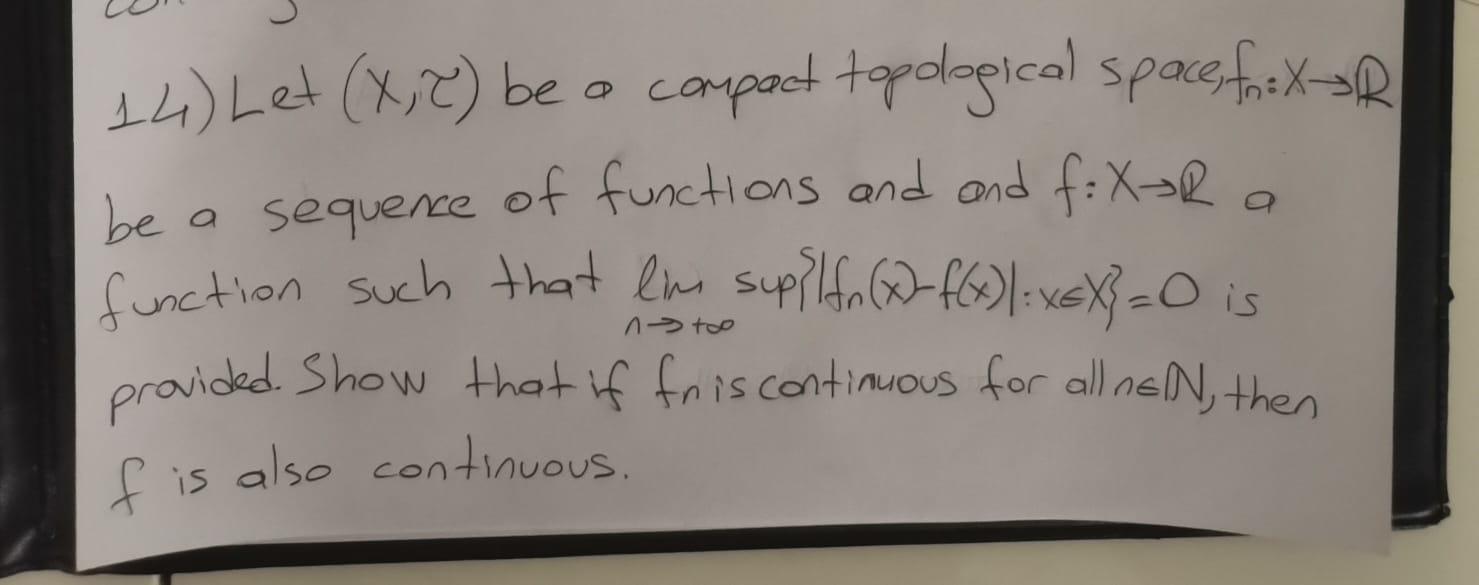 14) Let (X,τ) be a compact topological space, fn: X→R
be a sequence of functions and and f: X→R a
function such that lim sup{|fn(x)-f(x)|: x∈X}=0 is
n→+∞
provided. Show that if fn is continuous for all n∈N, then
f is also continuous.